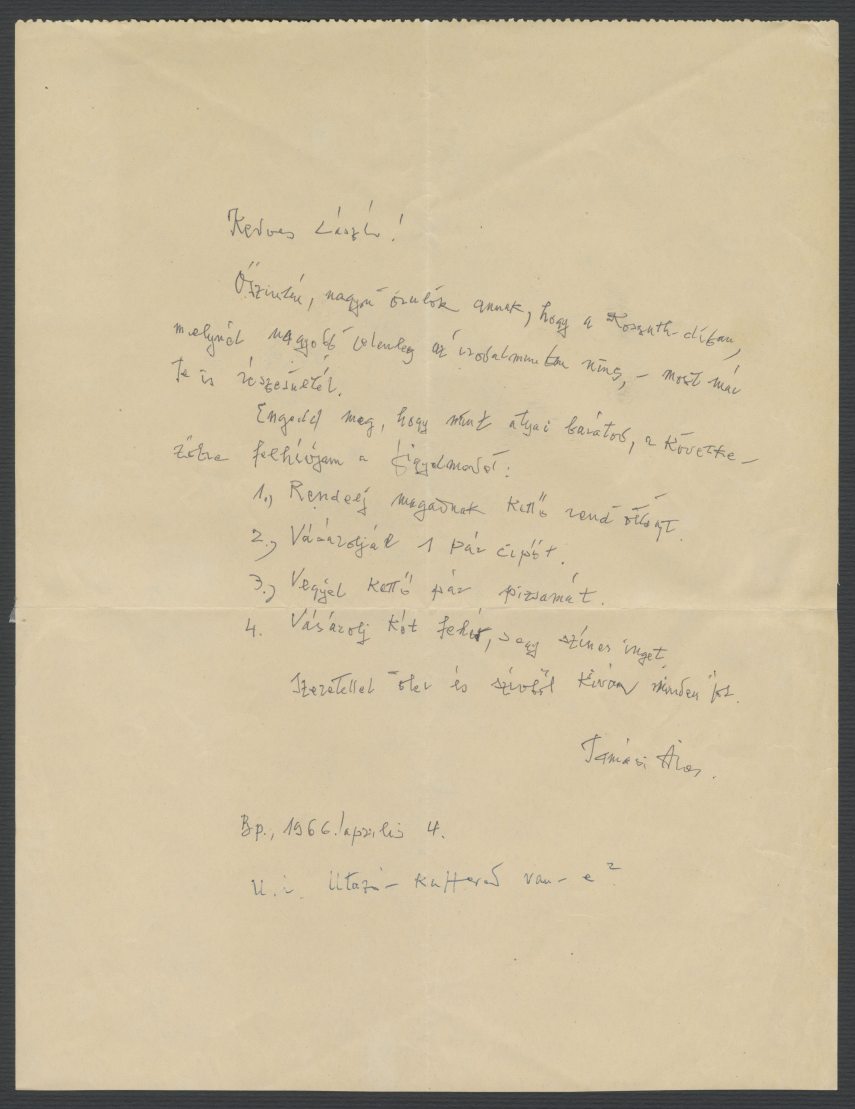 Kedves László!
Őszintén, nagyon örülök annak, hogy a Kossuth-díjban,
melynél nagyobb jelenleg az irodalmunkban nincs, – most már
Te is részesültél.
Engedd meg, hogy mint atyai barátod, a követke-
zőkre felhívjam a figyelmedet:
1., Rendelj magadnak kettő rend öltönyt.
2., Vásároljál 1 pár cipőt.
3., Vegyél kettő pár pizsamát.
4. Vásárolj két fehér, s egy színes inget.
Szeretettel ölel és szívből kíván minden jót
Tamási Áron.
Bp., 1966. április 4.
U.i. Utazó-kuffered van-e?